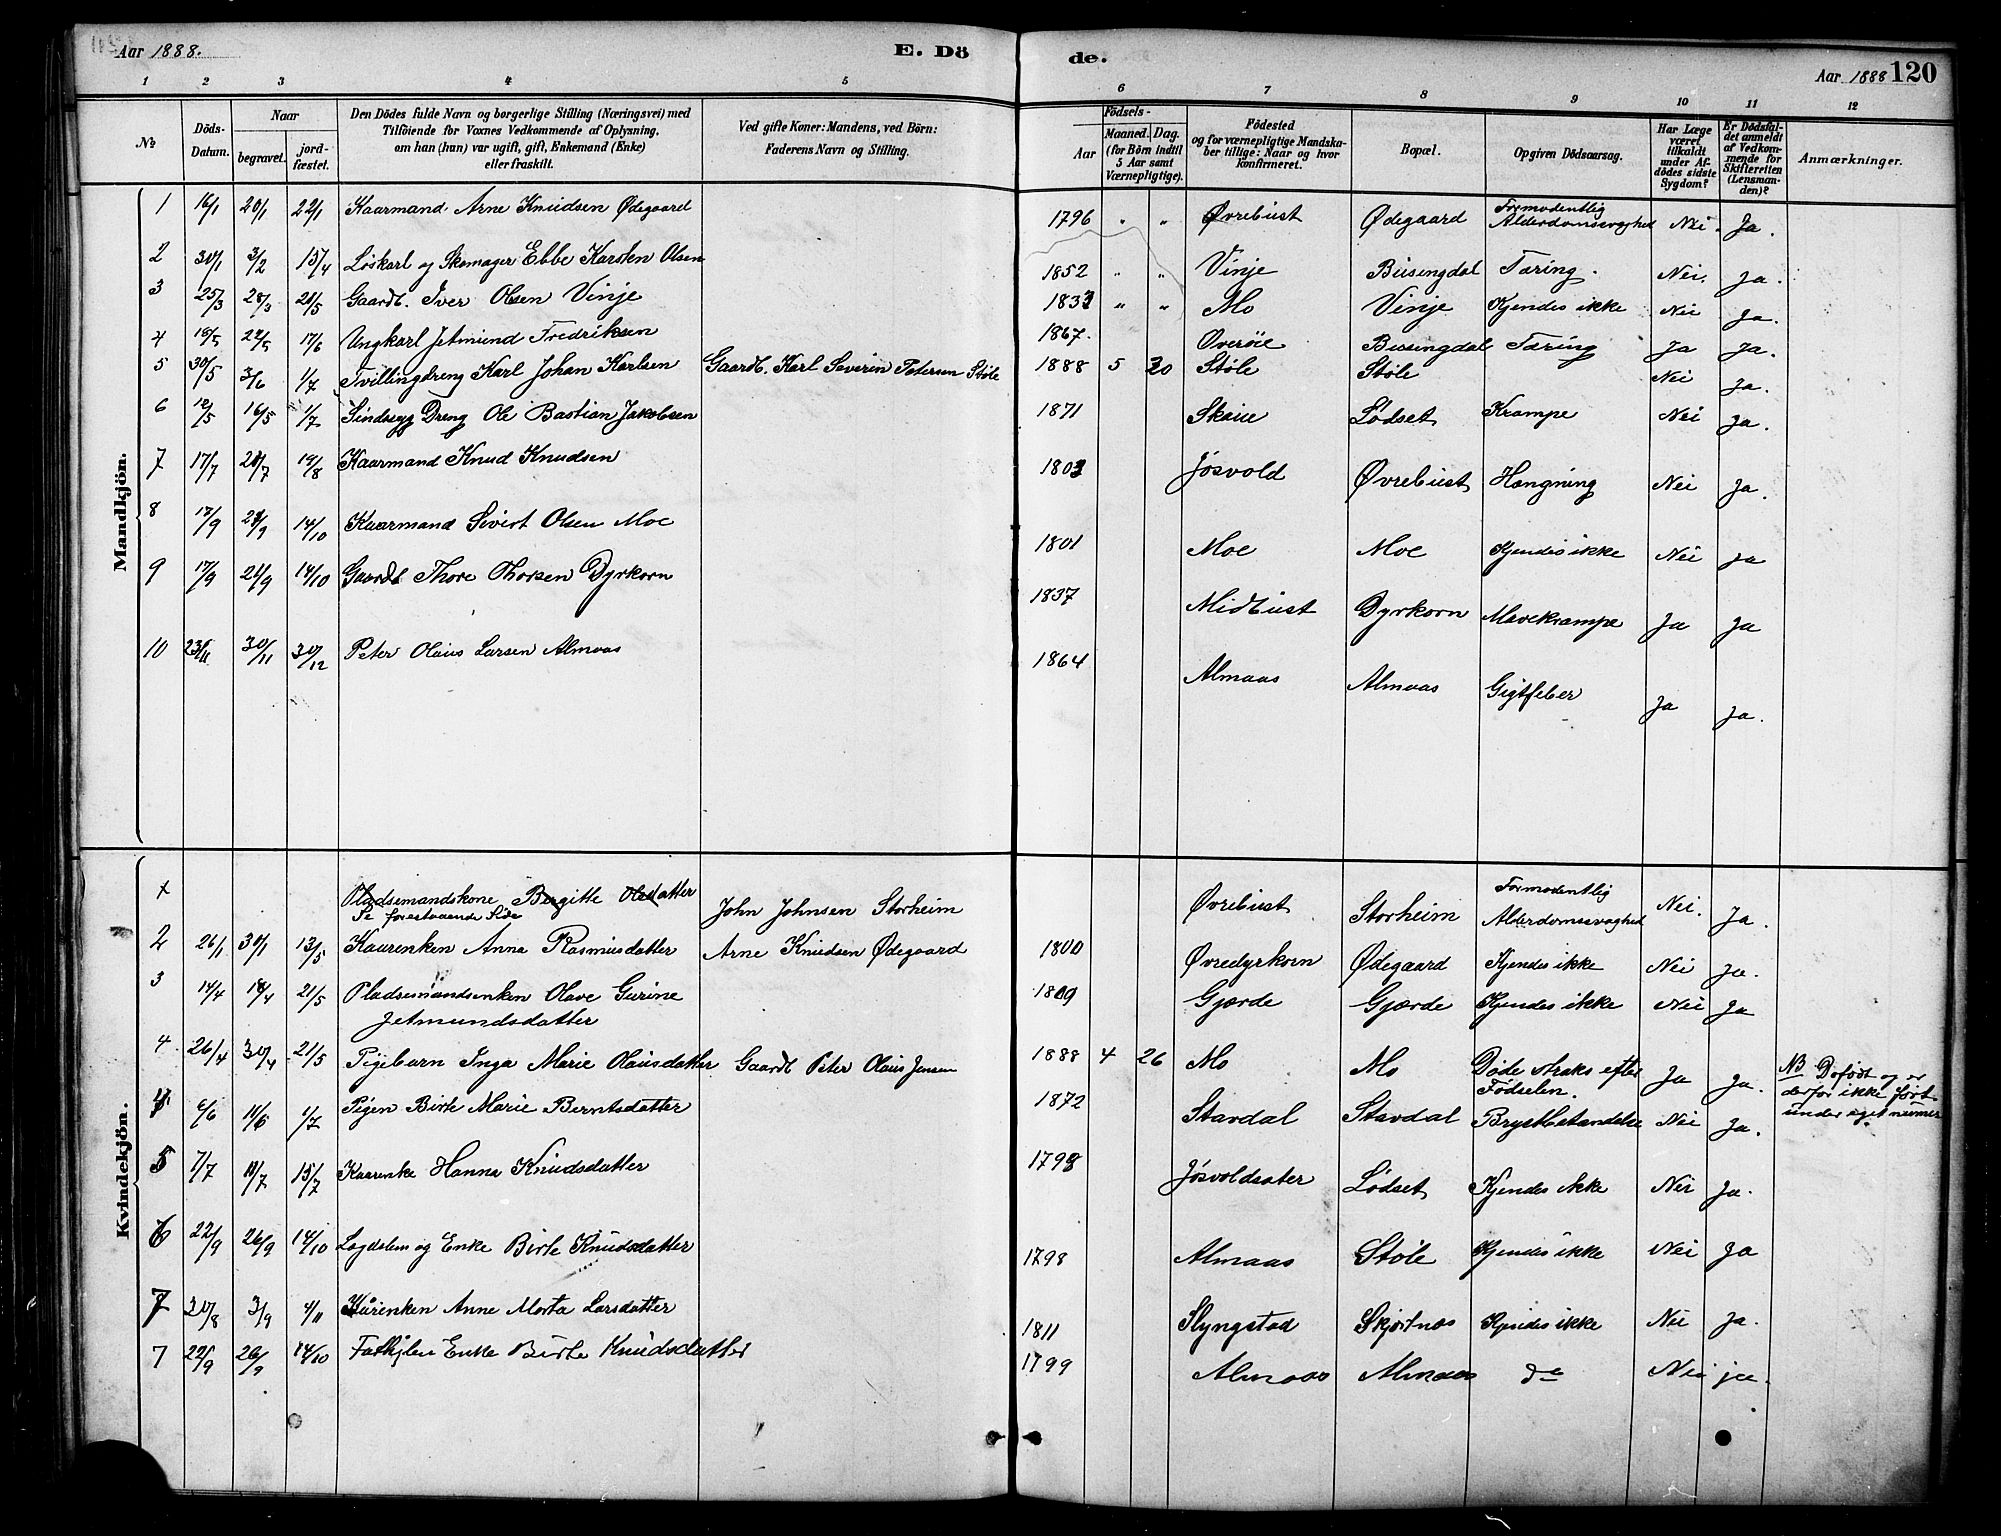 Aar 1888. E. Dö de. Aar 1888 120
1 2 3 4 5 6 7 8 9 10 11 12
No Döds-Datum. Naar begravet. jordfæstet. Den Dödes fulde Navn og borgerlige Stilling (Næringsvei) med Tilföiende for Voxnes Vedkommende af Oplysning, om han (hun) var ugift, gift, Enkemand (Enke) eller fraskilt. Ved gifte Koner: Mandens, ved Börn: Faderens Navn og Stilling. Födsels- Aar Maaned. Dag. (for Börn indtil 5 Aar samt Værnepligtige). Födested og for værnepligtige Mandskaber tillige: Naar og hvor konfirmeret. Bopæl. Opgiven Dödsaarsag. Har Læge været tilkaldt under Afdödes sidste Sygdom? Er Dödsfaldet anmeldt af Vedkommende for Skifteretten (Lensmanden)? Anmærkninger.
Mandkjön.
1 16/1 20/1 22/1 Kaarmand Arne Knudsen Ødegaard 1796 " " Øvrebust Ødegaard Formodentlig Alderdomssvaghed Nei. Ja.
2 30/1 3/2 15/4 Löskarl og Skomager Ebbe Karsten Olsen 1852 " " Vinje Busengdal Tæring. Nei. Ja.
3 25/3 28/3 21/5 Gaardb. Iver Olsen Vinje 1833 " " Mo Vinje Kjendes ikke Nei Ja.
4 18/5 24/5 17/6 Ungkarl Jetmund Fredriksen 1867. Overöie Busengdal Tæring Ja Ja.
5 30/5 3/6 1/7 Tvillingdreng Karl Johan Karlsen Gaardb. Karl Severin Petersen Støle 1888 5 30 Støle Støle Nei Ja.
6 12/5 16/5 1/7 Sindssyg Dreng Ole Bastian Jakobsen 1871 Skaue Lødset Krampe Nei Ja.
7 17/7 20/7 19/8 Kaarmand Knud Knudsen 1803 Jøsvold Øvrebust Hængning Nei Ja.
8 17/9 21/9 14/10 Kaarmand Sivert Olsen Moe 1801 Moe Moe Kjendes ikke Nei Ja
9 17/9 21/9 14/10 Gaardb Thore Thorsen Dyrkorn 1837 Midtbust Dyrkorn Mavekrampe Ja Ja
10 23/11 30/11 30/12 Peter Olaus Larsen Almaas 1864 Almaas Almaas Gigtfeber Ja Ja.
Kvindekjön.
x Pladsemandskone Birgitte Olsdatter John Johnsen Storheim Øvrebust Storheim Formodentlig Alderdomssvaghed Nei. Ja.
Se forestaaende Side
2 26/1 30/1 13/5 Kaarenken Anna Rasmusdatter Arne Knudsen Ødegaard 1800 Øvredyrkorn Ødegaard Kjendes ikke Nei Ja.
3 14/4 18/4 21/5 Pladsemandsenken Olave Gurine 1809 Gjærde Gjærde Kjendes ikke Nei Ja
Jetmundsdatter
4 26/4 30/4 21/5 Pigebarn Inga Marie Olausdatter Gaardb Peter Olaus Jensen 1888 4 26 Mo Mo Døde straks efter Fødselen. Ja Ja. NB Døfødt og er derfor ikke ført under eget numer
4 6/6 11/6 1/7 Pigen Birte Marie Berntsdatter 1872 Stavdal Stavdal Brystbetændelse Nei Ja.
5 7/7 11/7 15/7 Kaarenke Hanna Knudsdatter 1798 Jøsvoldsæter Lødset Kjendes ikke Nei Ja.
6 22/9 26/9 14/10 Lægdslem og Enke Birte Knudsdatter 1798 Almaas Støle Kjendes ikke Nei Ja
7 30/8 3/9 4/11 Kårenken Anne Marta Larsdatter 1811 Slyngstad Skjortnæs Kjendes ikke Nei Ja.
7 22/9 26/9 14/10 Enke Birte Knudsdatter 1799 Almaas Almaas do Nei jee.